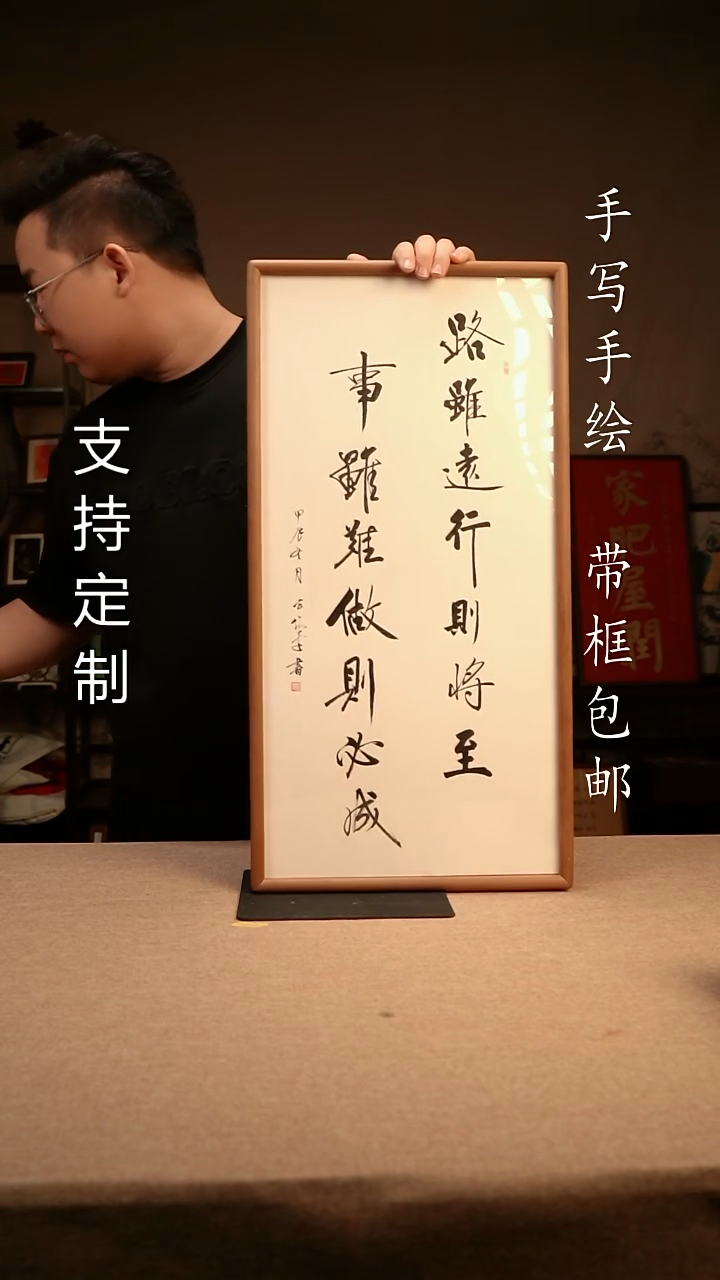 手写手绘 带框包邮
路雖遠行則將至
事雖難做則必成
支持定制